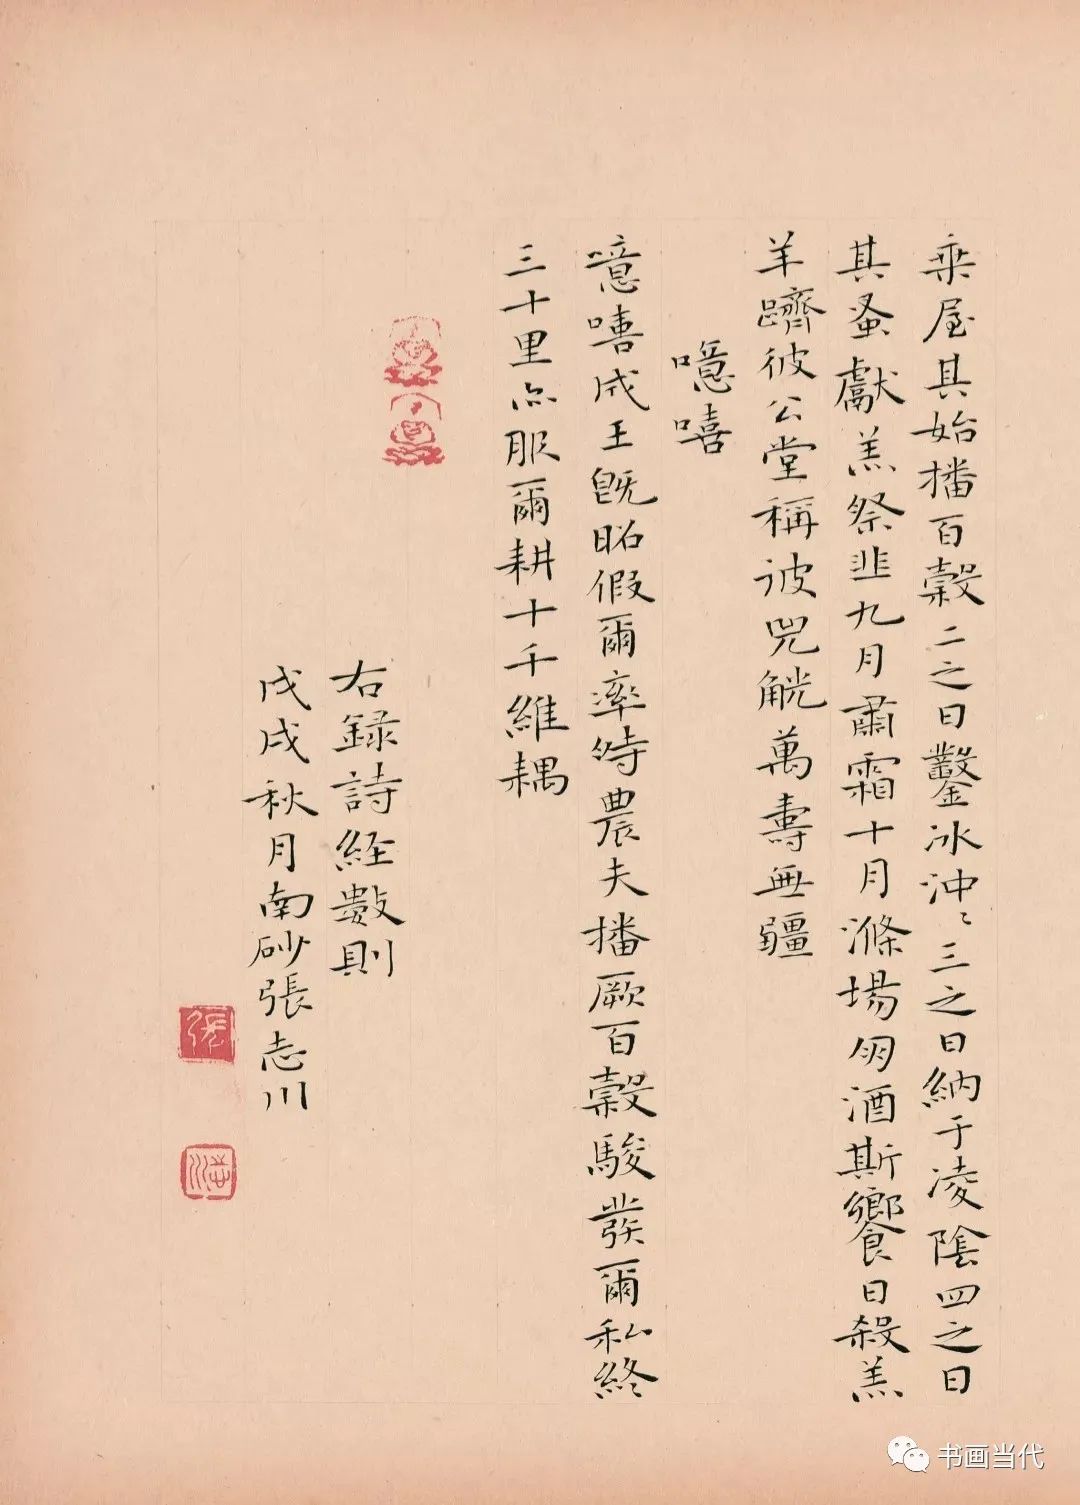 乗屋其始播百穀二之日鑿冰沖〻三之日納于凌陰四之日
其蚤獻羔祭韭九月肅霜十月滌場朋酒斯饗日殺羔
羊躋彼公堂稱彼兕觥萬壽無疆
噫嘻
噫嘻成王既昭假爾率時農夫播厥百穀駿發爾私終
三十里亦服爾耕十千維耦
右録詩経數則
戊戌秋月南砂張志川
张
志川
书画当代